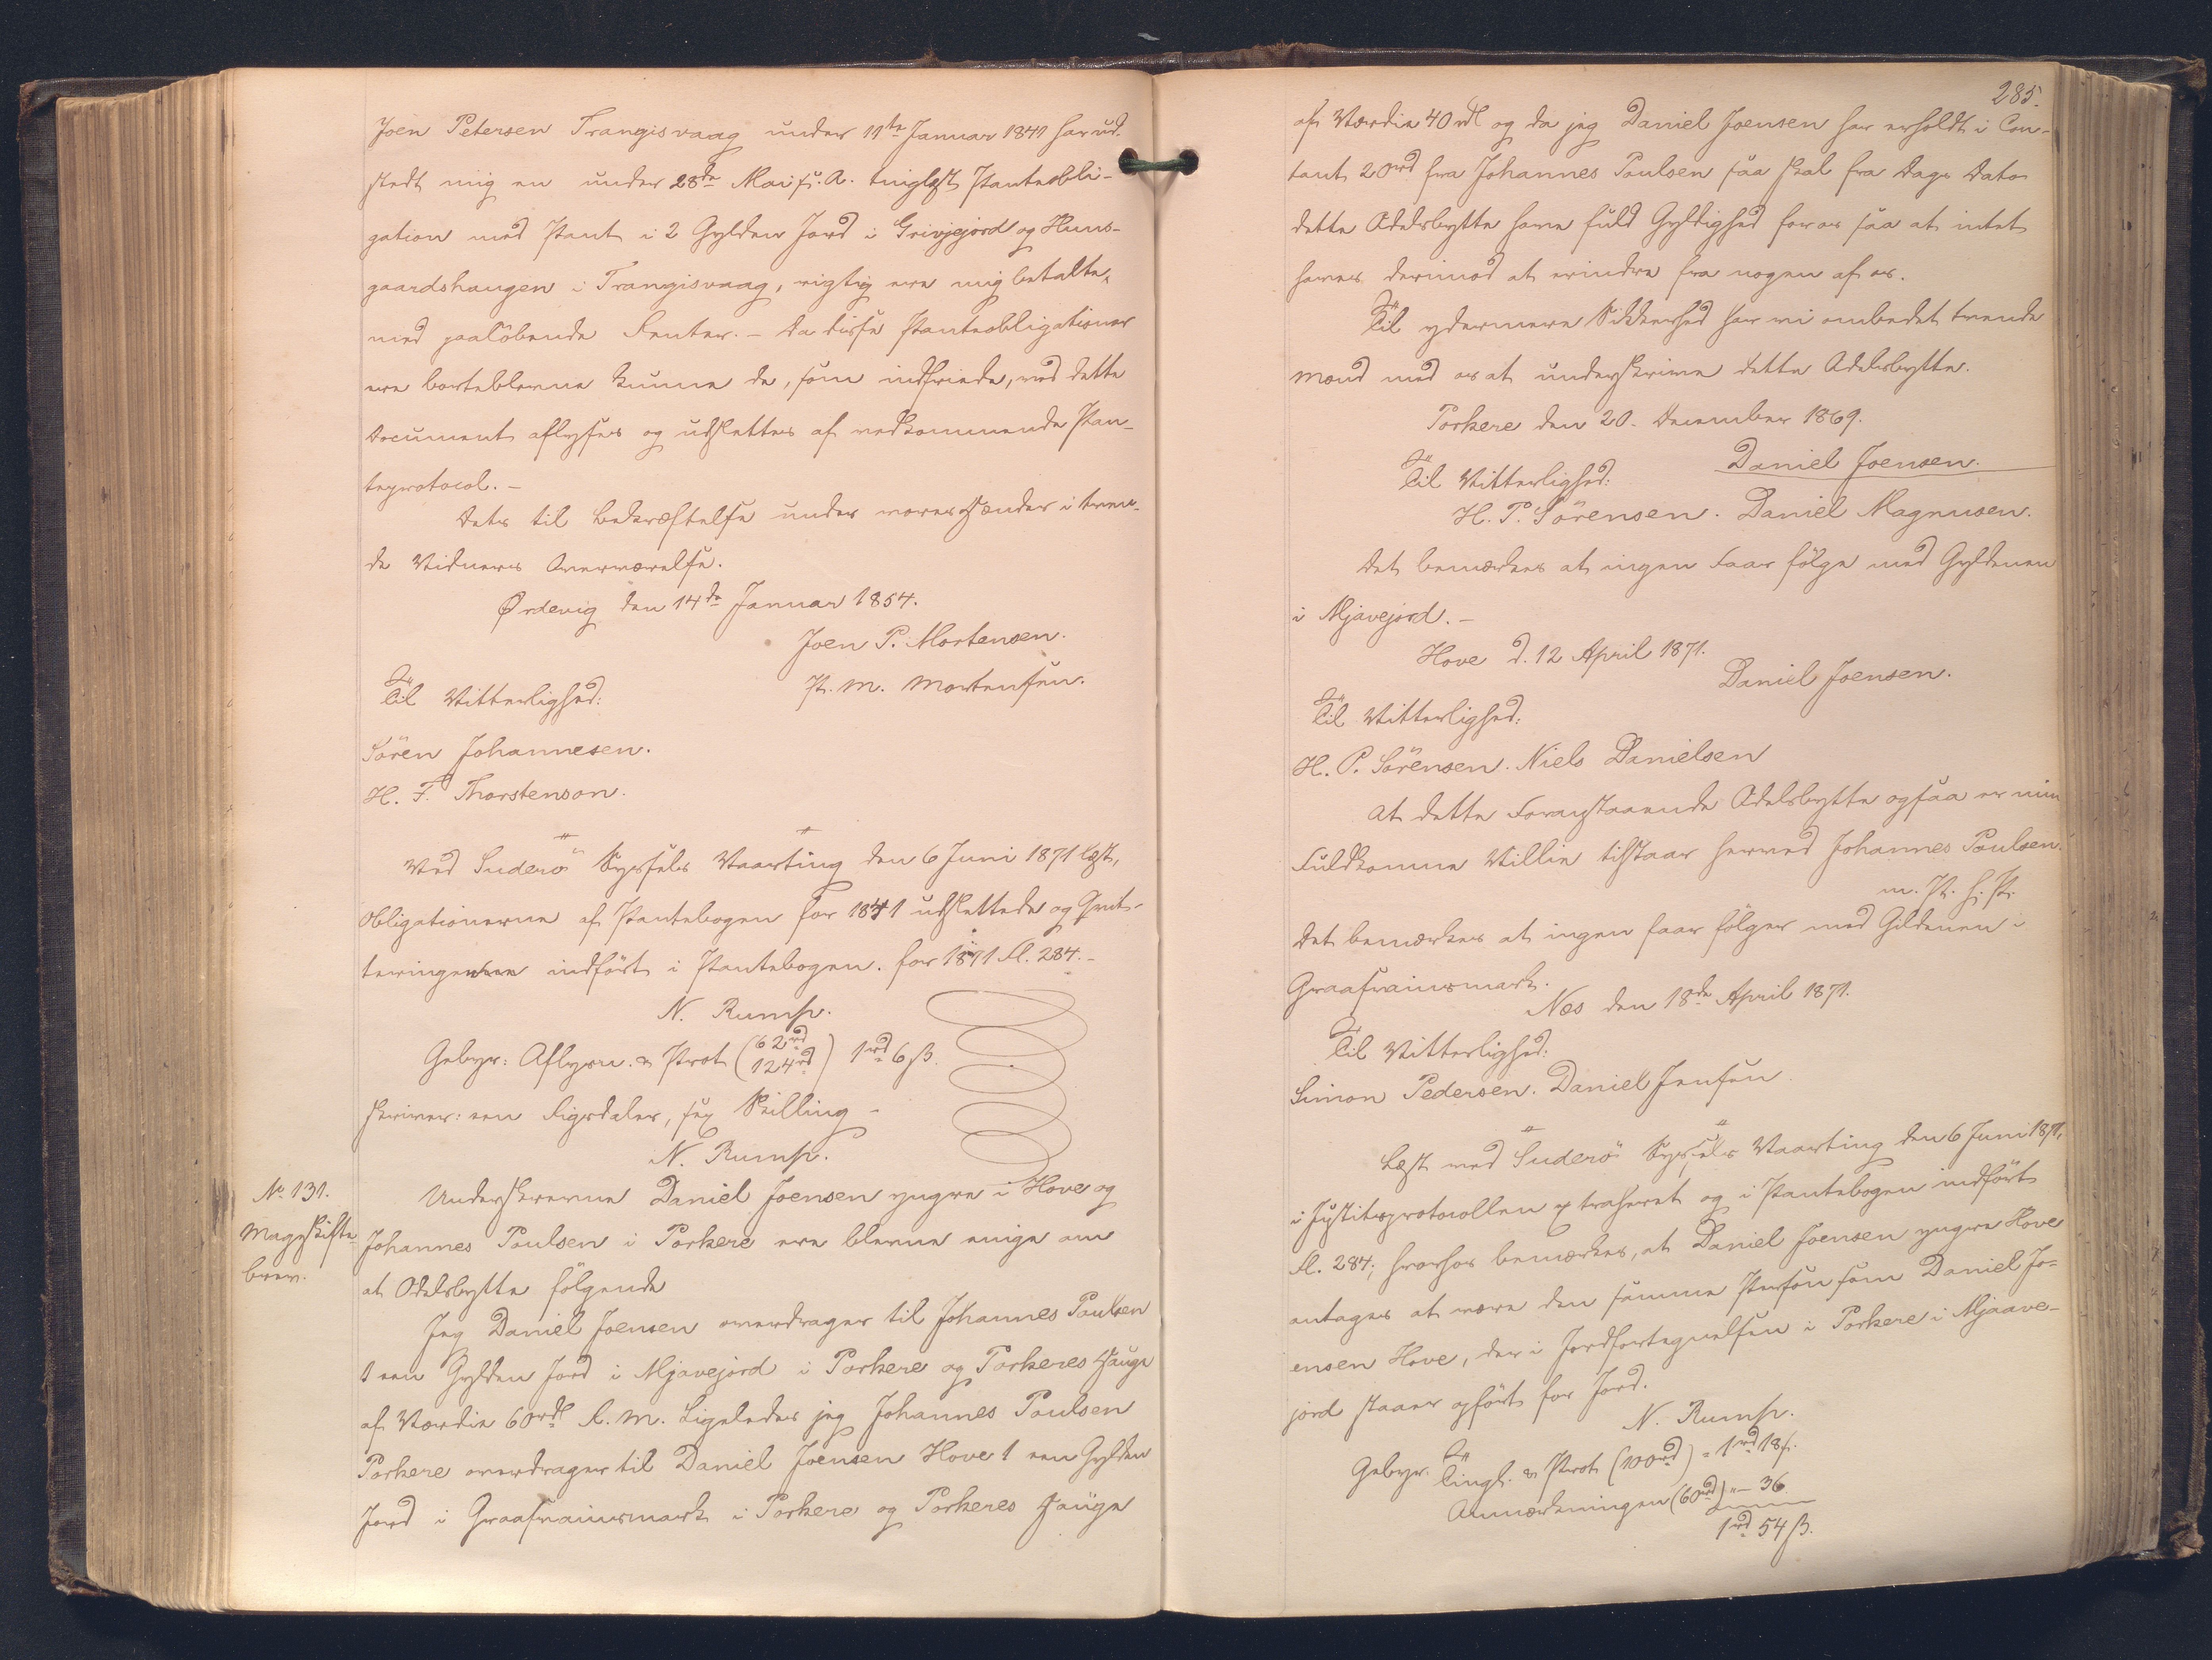 Joen Petersen Trangisvaag under 11te Januar 1841 har ud-
stedt mig en under 28de Mai s. A. tinglæst Panteobli-
gation med Pant i 2 Gylden Jord i Grivjejord og Huus-
gaardshaugen i Trangisvaag, rigtig ere mig betalte,
med paalöbende Renter. – Da disse Panteobligationer
ere borteblevne kunne de, som indfriede, med dette
Document aflyses og udslettes af vedkommende Pan-
teprotocol. –
Dets til Bekræftelse under vores Hænder i tven-
de Vidners Overværelse.
Ørdevig den 14de Januar 1854.
Joen P. Mortensen.
P. M. Mortensen.
Til Vitterlighed:
Sören Johannesen.
H. F. Thorstenson.
Ved Suderö Syssels Vaarting den 6 Juni 1871 læst,
Obligationerne af Pantebogen for 1841 udslettede og Qvit-
teringen indfört i Pantebogen for 1871 Fl. 284. –
N. Rump.
Gebyr: Aflysn. & Prot (62rd 124rd) 1rd 6 ß.
skriver: een Rigsdaler, sex Skilling –
N. Rump.
No. 131.
Mageskifte-
brev.
Underskrevne Daniel Joensen yngre i Hove og
Johannes Poulsen i Porkere ere blevne enige om
at Odelsbytte fölgende
Jeg Daniel Joensen overdrager til Johannes Poulsen
1 een Gylden Jord i Mjavejord i Porkere og Porkeres Hauge
af Værdie 60rdl R. M. Ligeledes jeg Johannes Poulsen
Porkere overdrager til Daniel Joensen Hove 1 een Gylden
Jord i Graafrainsmark i Porkere og Porkeres Hauge
285.
af Værdie 40rdl og da jeg Daniel Joensen har erholdt i Con-
tant 20rd fra Johannes Poulsen saa skal fra Dags Dato
dette Odelsbytte have fuld Gyldighed for os saa at intet
haves derimod at erindre fra nogen af os.
Til ydermere Sikkerhed har vi ombedet tvende
Mænd med os at underskrive dette Odelsbytte.
Porkere den 20. December 1869.
Daniel Joensen.
Til Vitterlighed:
H. P. Sörensen. Daniel Magnusen.
Det bemærkes at ingen Faar fölge med Gyldenen
i Mjavejord. –
Hove d. 12 April 1871.
Daniel Joensen.
Til Vitterlighed:
H. P. Sörensen. Niels Danielsen
At dette Foranstaaende Odelsbytte ogsaa er min
Fuldkomne Villie tilstaar herved Johannes Poulsen.
m. P. h. P.
Det bemærkes at ingen faar fölger med Gildenen i
Graafrainsmark.
Næs den 18de April 1871.
Til Vitterlighed:
Simon Pedersen. Daniel Jensen.
Læst ved Suderö Syssels Vaarting den 6 Juni 1871,
i Justitsprotocollen extraheret og i Pantebogen indfört
Fl. 284; hvorhos bemærkes, at Daniel Joensen yngre Hove
antages at være den samme Person som Daniel Jo-
ensen Hove, der i Jordfortegnelsen i Porkere i Mjaave-
jord staaer opfört for Jord.
N. Rump.
Gebyr. Tingl. & Prot (100rd) = 1rd 18 ß.
Anmærkningen (60rd) " – 36
1rd 54 ß.